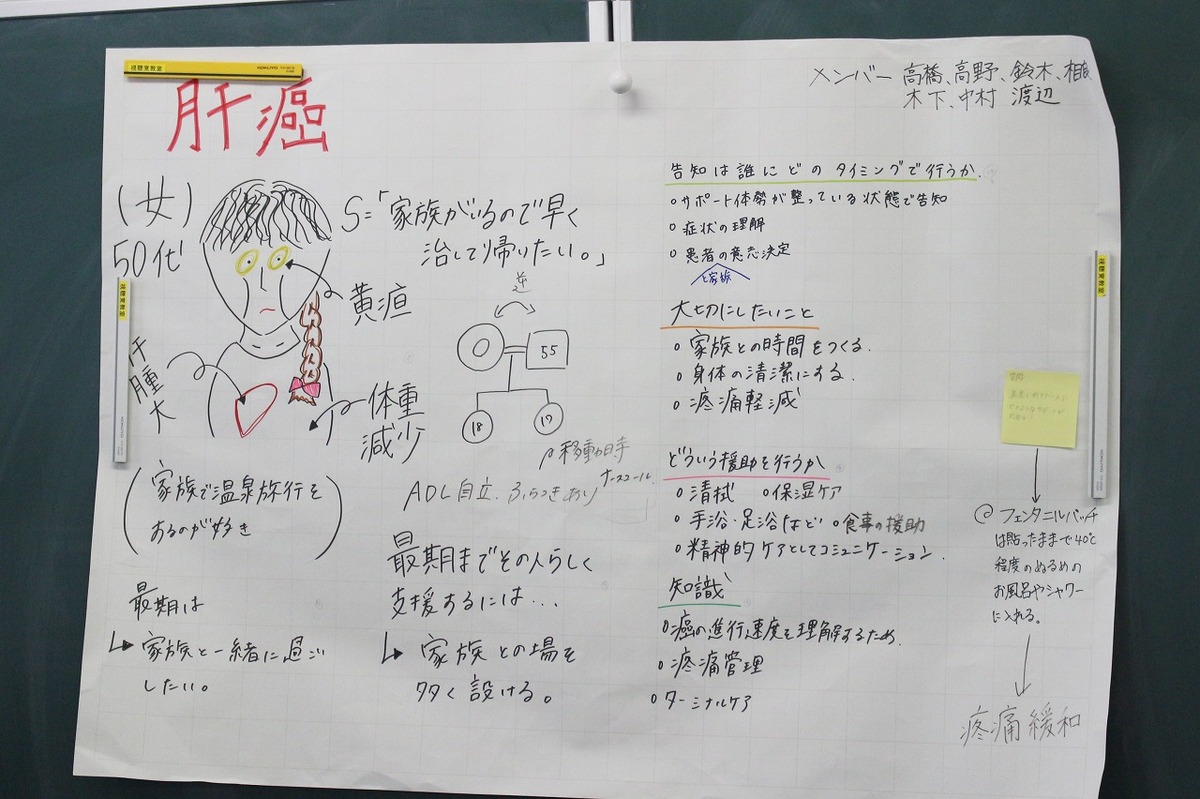 視聴覚教室 KOKUYO
肝癌
メンバー 高橋、高野、鈴木、
木下、中村 渡辺
(女)
50代
S=「家族がいるので早く
治して帰りたい。」
黄疸
肝
腫
大
体重
減少
逆
55
18
17
移動時
ナースコール
ADL自立、ふらつきあり
(家族で温泉旅行を
するのが好き)
最期は
↳家族と一緒に過ご
したい。
最期までその人らしく
支援するには…
↳家族との場を
多く設ける。
告知は誰にどのタイミングで行うか
○サポート体勢が整っている状態で告知
○症状の理解
○患者の意志決定
と家族
大切にしたいこと
○家族との時間をつくる。
○身体の清潔にする。
○疼痛軽減
どういう援助を行うか
○清拭 ○保湿ケア
○手浴・足浴など ○食事の援助
○精神的ケアとしてコミュニケーション。
知識
○癌の進行、速度を理解するため。
○疼痛管理
○ターミナルケア
視聴覚教室
視聴覚教室
KOKUYO
@フェンタニルパッチ
は貼ったままで40℃
程度のぬるめの
お風呂やシャワー
に入れる。
疼痛緩和